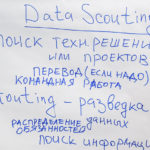 Data Scouting
ПОИСК ТЕХН РЕШЕНИ
ИЛИ ПРОЕКТОВ
ПЕРЕВОД (ЕСЛИ НАДО)
КОМАНДНАЯ РАБОТА
couting – разведка
данных
РАСПРЕДЕЛЕНИЕ
ОБЯЗАННОСТЕЙ
ПОИСК ИНФОРМАЦИ